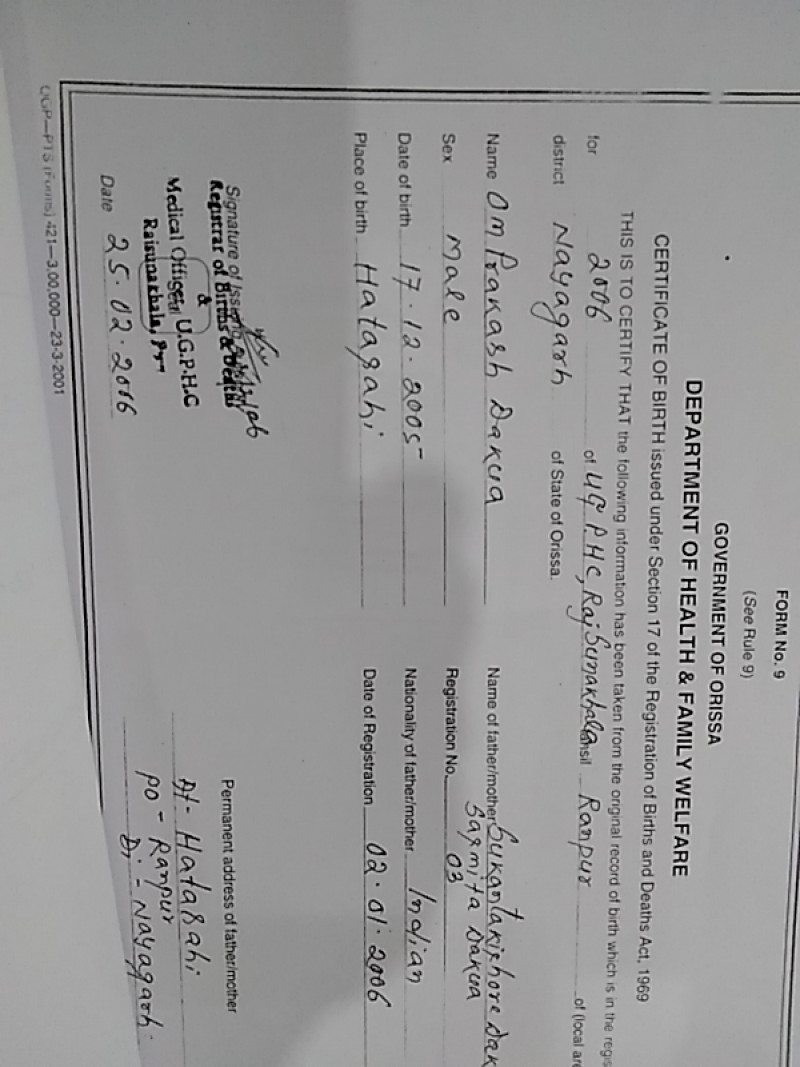 FORM No. 9
(See Rule 9)
GOVERNMENT OF ORISSA
DEPARTMENT OF HEALTH & FAMILY WELFARE
CERTIFICATE OF BIRTH issued under Section 17 of the Registration of Births and Deaths Act, 1969
THIS IS TO CERTIFY THAT the following information has been taken from the original record of birth which is in the regis
for 2006 of UG.P.HC, Raj Sunakhala Ranpur of (local are
district Nayagarh of State of Orissa.
Name Om Prakash Dakua
Name of father/mother Sukanta kishore Dak
Sasmita Dakua
Sex Male
Registration No. 03
Date of birth 17.12.2005
Nationality of father/mother Indian
Place of birth Hatasahi
Date of Registration 02.01.2006
Signature of
Registrar of Births & Deaths
&
Medical Officer, U.G.P.H.C
Rajsunakhala,
Date 25.02.2006
Permanent address of father/mother
At- Hatasahi
PO - Ranpur
Di - Nayagarh.
OGP—PTS (Forms) 421—3,00,000—23-3-2001